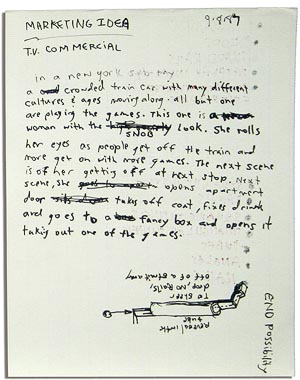 MARKETING IDEA
9.8.89
T.V. COMMERCIAL
in a new york subway
a crowded train car with many different
cultures & ages moving along. all but one
are playing the games. This one is a
woman with the SNOB look. She rolls
her eyes as people get off the train and
more get on with more games. The next scene
is of her getting off at next stop. Next
scene, she opens apartment
door takes off coat, fixes drink
and goes to a fancy box and opens it
taking out one of the games.
END Possibility
little
tube
TO STEER
drop, no Balls,
off of a